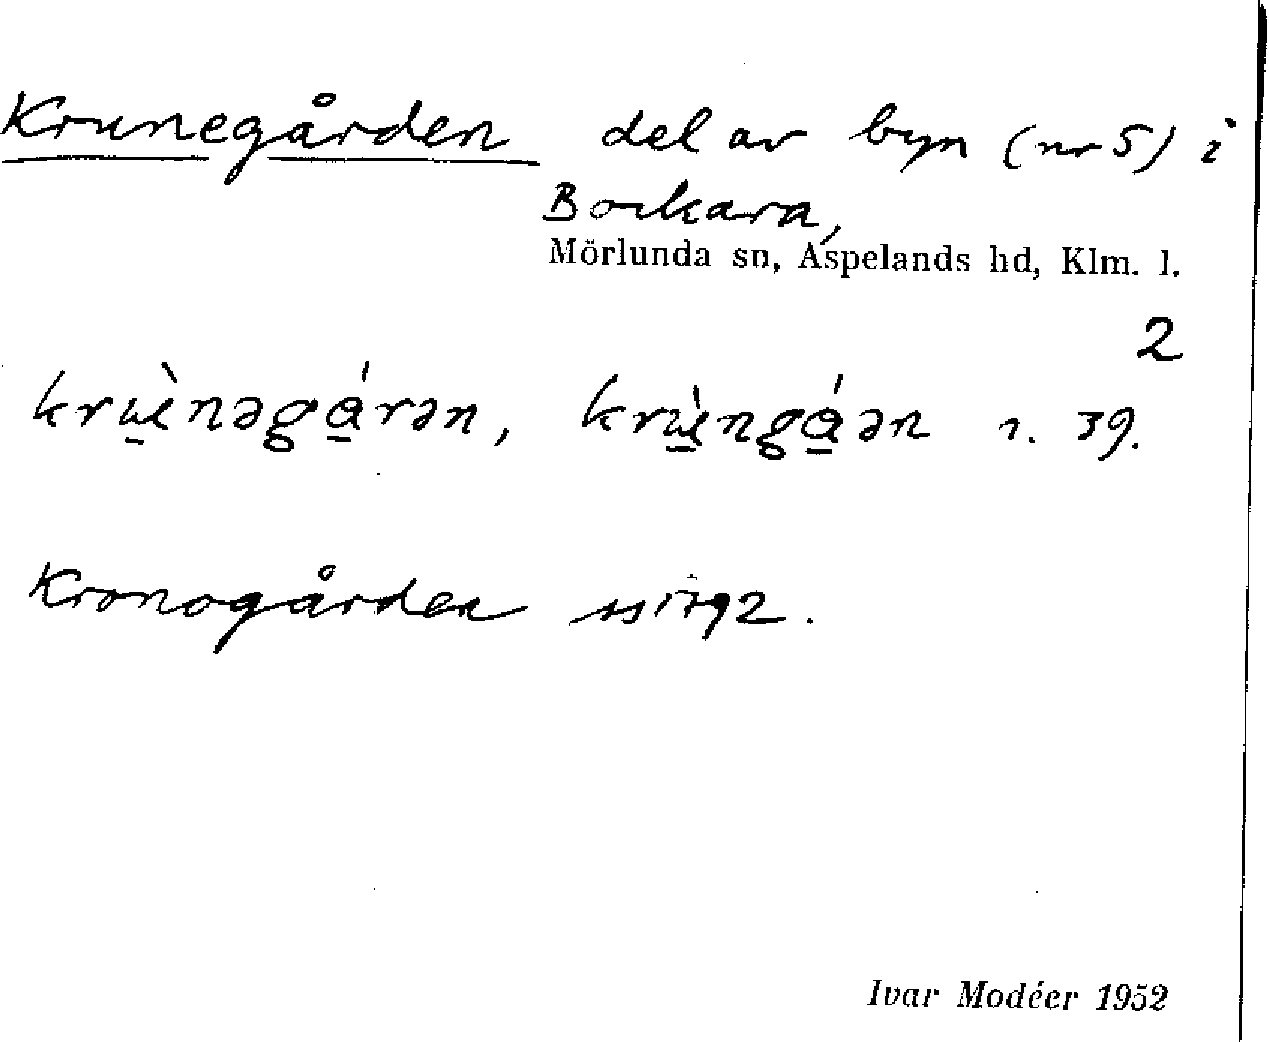 Krunegården del av byn (nr 5) i
Bockara,
Mörlunda sn, Aspelands hd, Klm. l.
2
krɯ̀nəgárən, krɯ̀ngáən 1. 39.
Kronogården 1792.
Ivar Modéer 1952